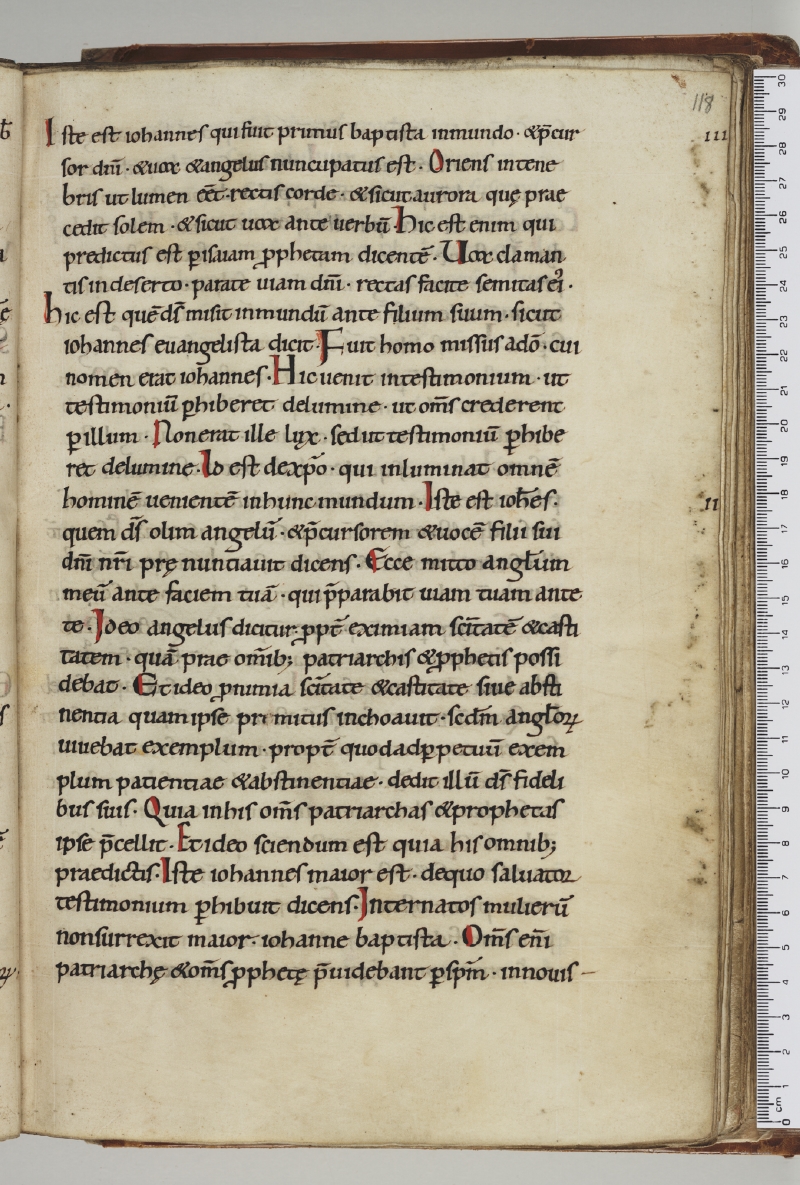 118
Iste est iohannes qui fuit primus baptista inmundo · &p̄cur
III
sor dn̄i · &uox &angelus nuncupatus est · Oriens intene
bris ut lumen eēt · rectis corde · &sicut aurora quę prae
cedit solem · &sicut uox ante uerbū · hic est enim qui
predictus est p̱ isaiam ꝓphetam dicentē · Uox claman
tis indeserto · parate uiam dn̄i · rectas facite semitas ei᾽ ·
hic est quē ds̄ misit inmundū ante filium suum · sicut
iohannes euangelista dicit · Fuit homo missus adō · cui
nomen erat iohannes · Hic uenit intestimonium · ut
testimoniū ꝑhiberet delumine · ut om̄s crederent
ꝑillum · Non erat ille lux · sed ut testimoniū ꝑhibe
ret delumine · Id est dexp̄o · qui inluminat omnē
hominē uenientē inhunc mundum · Iste est ioh̄es ·
II
quem ds̄ olim angelū · &p̄cursorem &uocē filii sui
dn̄i nr̄i pręnuntiauit dicens · Ecce mitto angl̄um
meū ante faciem tuā · qui p̄parabit uiam tuam ante
te · Ideo angelus dicitur ꝓpt̄ eximiam sc̄itatē &casti
tatem · quā prae omīb; patriarchis &ꝓphetis possi
debat · Et ideo ꝓ nimia sc̄itate &castitate siue absti
nentia quam ipse primitus inchoauit · scd̄m angl̄oꝝ
uiuebat exemplum · propt̄ quod adꝑpetuū exem
plum patientiae &abstinentiae · dedit illū ds̄ fideli
bus suis · Quia inhis om̄s patriarchas &prophetas
ipse p̄cellit · Et ideo sciendum est quia his omnib;
praedictis · Iste iohannes maior est · dequo saluator
testimonium ꝑhibuit dicens · Inter natos mulierū
non surrexit maior · iohanne baptista · Om̄s eni̅
patriarchę &om̄s ꝓphetę p̄uidebant ꝑ sp̄m · innouis